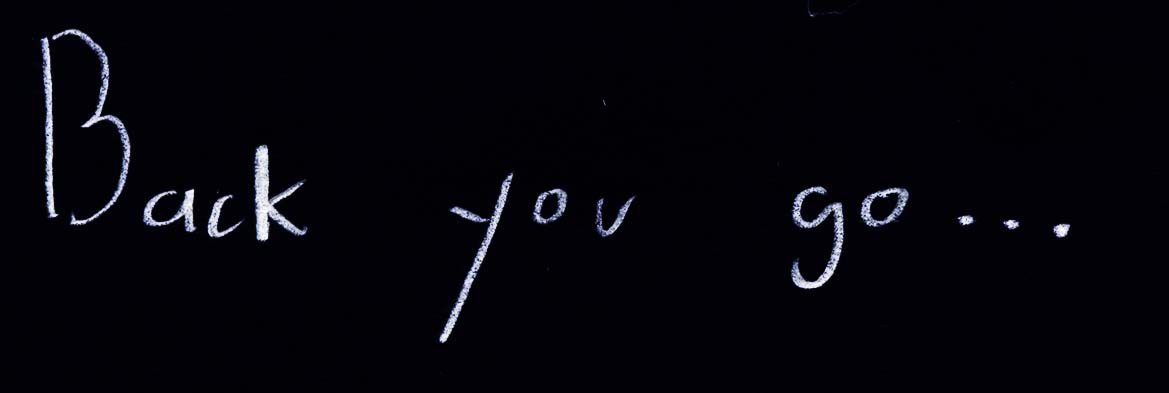 Back you go...